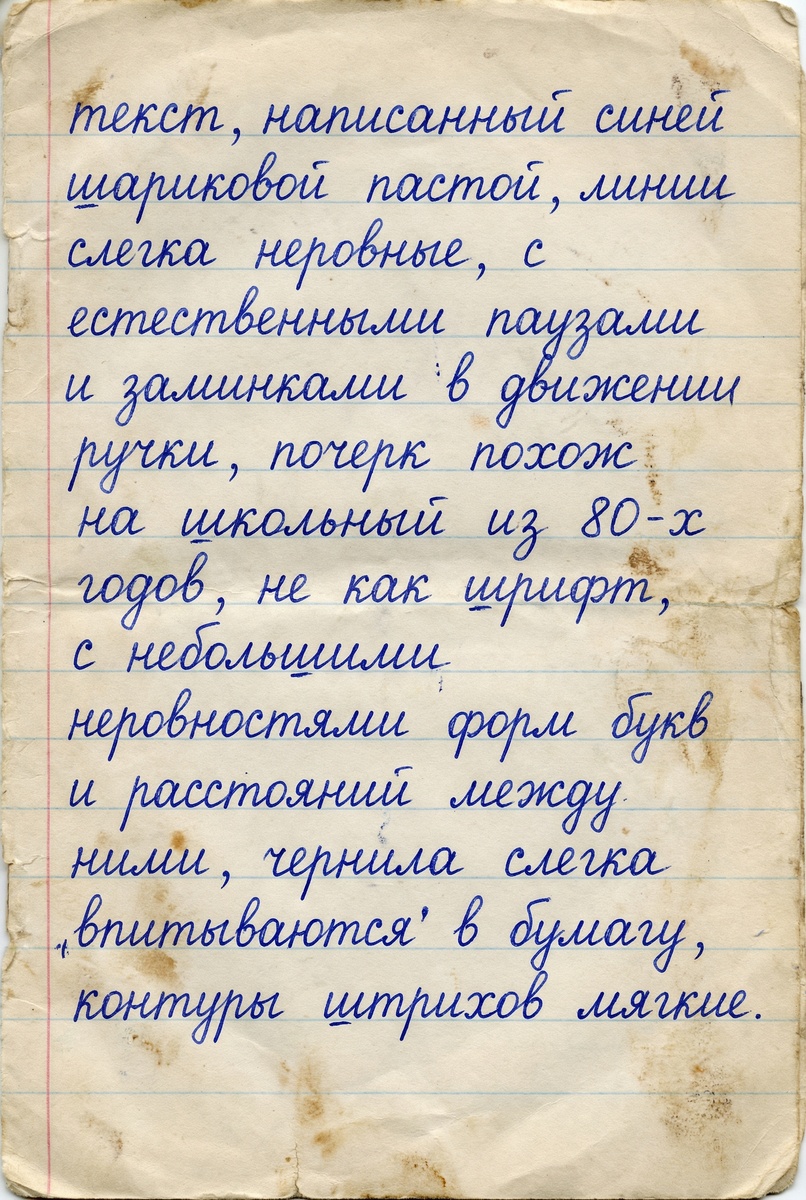 текст, написанный синей
шариковой пастой, линии
слегка неровные, с
естественными паузами
и заминками в движении
ручки, почерк похож
на школьный из 80-х
годов, не как шрифт,
с небольшими
неровностями форм букв
и расстояний между
ними, чернила слегка
„впитываются' в бумагу,
контуры штрихов мягкие.